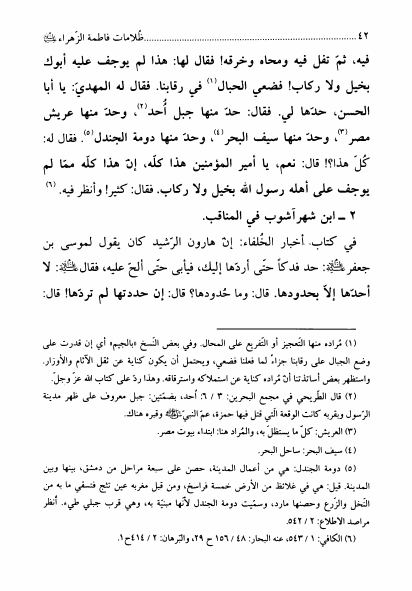 ٤٢ ........ ظُلامات فاطمة الزّهراء عليها السلام
فيه، ثمّ تفل فيه ومحاه وخرقه! فقال لها: هذا لم يوجف عليه أبوك
بخيل ولا ركاب! فضعي الحبال(١) في رقابنا. فقال له المهديّ: يا أبا
الحسن، حدّها لي. فقال: حدّ منها جبل أُحد(٢)، وحدّ منها عريش
مصر(٣)، وحدّ منها سيف البحر(٤)، وحدّ منها دومة الجندل(٥). فقال له:
كُلّ هذا؟! قال: نعم، يا أمير المؤمنين هذا كلّه، إنّ هذا كلّه ممّا لم
يوجف على أهله رسول الله بخيل ولا ركاب. فقال: كثير! وأنظر فيه.(٦)
٢ ـ ابن شهرآشوب في المناقب.
في كتاب. أخبار الخُلفاء: إنّ هارون الرّشيد كان يقول لموسى بن
جعفر عليه السلام: حد فدكاً حتّى أردّها إليك، فيأبى حتّى ألحّ عليه، فقال عليه السلام: لا
أحدّها إلاّ بحدودها. قال: وما حُدودها؟ قال: إن حددتها لم تردّها! قال:
(١) مُراده منها التّعجيز أو التّفريع على المحال. وفي بعض النّسخ «بالجيم» أي إن قدرت على
وضع الجبال على رقابنا جزاءً لما فعلنا فضعي، ويحتمل أن يكون كناية عن ثقل الآثام والأوزار.
واستظهر بعض أساتذتنا أنّ مُراده كناية عن استملاكه واسترقاقه. وهذا ردّ على كتاب الله عزّ وجلّ.
(٢) قال الطّريحي في مجمع البحرين: ٣ / ٦: أُحد، بضمّتين: جبل معروف على ظهر مدينة
الرّسول وبقربه كانت الوقعة الّتي قتل فيها حمزة، عمّ النّبي صلى الله عليه وآله وقبره هناك.
(٣) العريش: كلّ ما يستظلّ به، والمُراد هنا: ابتداء بيوت مصر.
(٤) سيف البحر: ساحل البحر.
(٥) دومة الجندل: هي من أعمال المدينة، حصن على سبعة مراحل من دمشق، بينها وبين
المدينة. قيل: هي في غلائظ من الأرض خمسة فراسخ، ومن قبل مغربه عين تثج فتسقي ما به من
النّخل والزّرع وحصنها مارد، وسمّيت دومة الجندل لأنّها مبنيّة به، وهي قرب جبلي طيء. أنظر
مراصد الاطلاع: ٢ / ٥٤٢.
(٦) الكافي: ١ / ٥٤٣، عنه البحار: ٤٨ / ١٥٦ ح ٢٩، والبُرهان: ٢ / ٤١٤ح١.